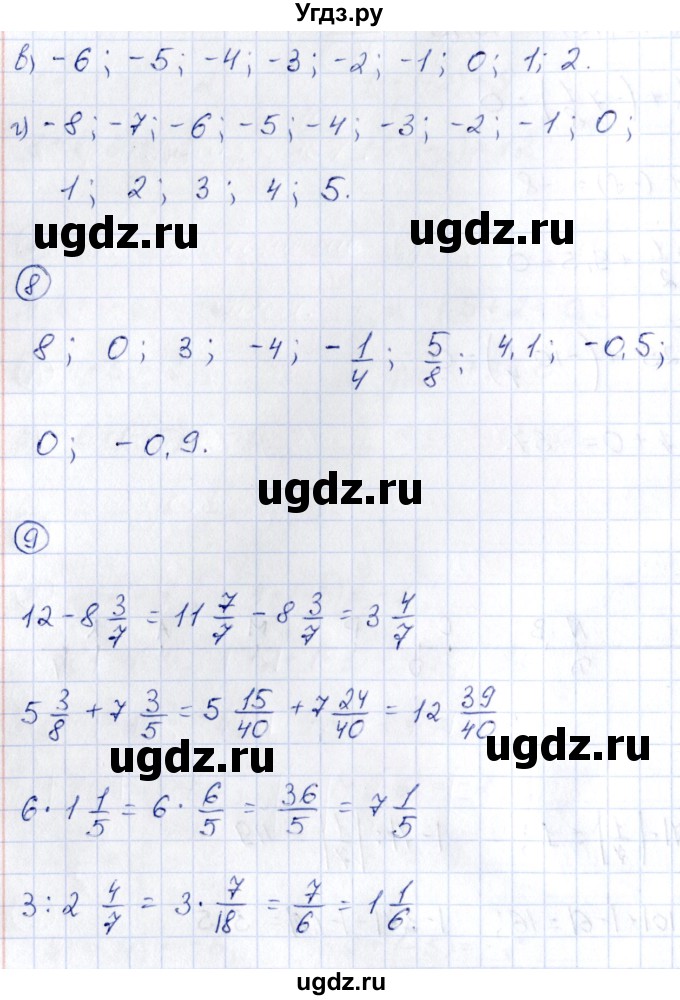 Угдз.ру
в) -6; -5; -4; -3; -2; -1; 0; 1; 2.
г) -8; -7; -6; -5; -4; -3; -2; -1; 0;
1; 2; 3; 4; 5.
ugdz.ru ugdz.ru
8
8; 0; 3; -4; -1/4; 5/8; 4,1; -0,5;
0; -0,9.
ugdz.ru
9
12 - 8 3/7 = 11 7/7 - 8 3/7 = 3 4/7
5 3/8 + 7 3/5 = 5 15/40 + 7 24/40 = 12 39/40
ugdz.ru ugdz.ru
6 · 1 1/5 = 6 · 6/5 = 36/5 = 7 1/5
3 : 2 4/7 = 3 · 7/18 = 7/6 = 1 1/6.
ugdz.ru